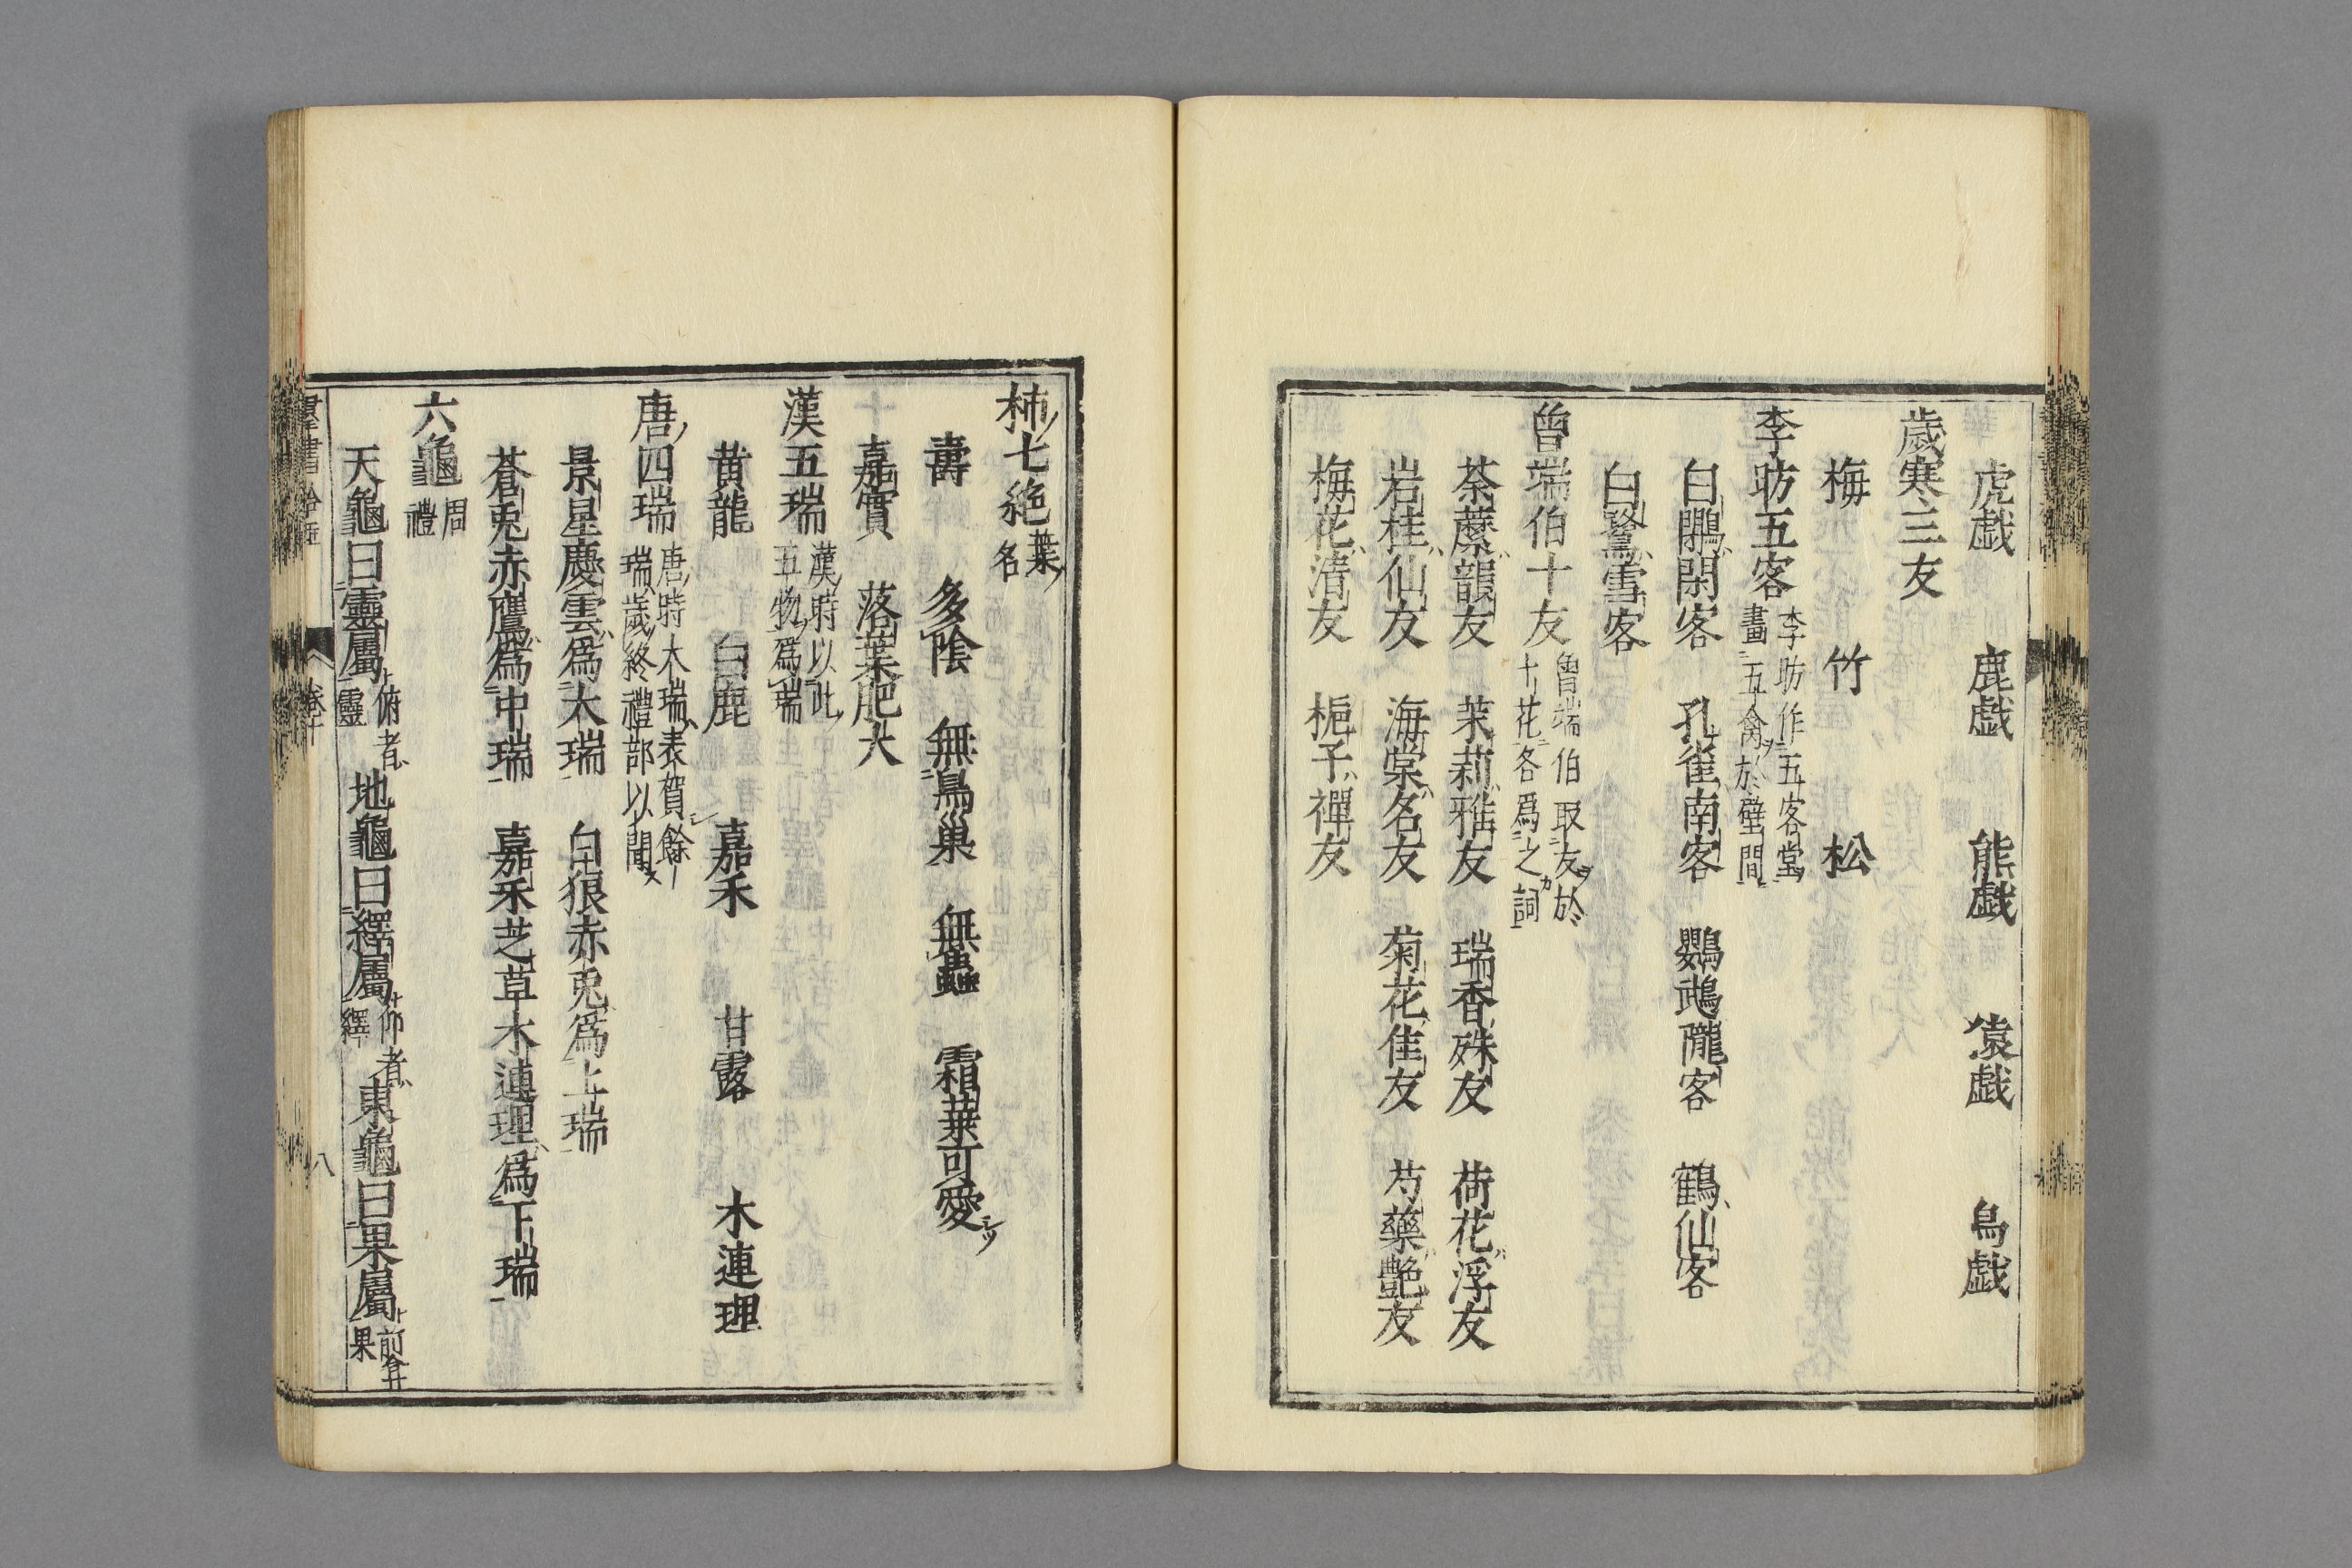 虎戯　鹿戯　熊戯　猿戯　鳥戯
歳寒三友
梅　竹　松
李昉五客 李昉作五客堂 畫五禽於壁間
白鷴閑客　孔雀南客　鸚鵡隴客　鶴仙客
白鷺雪客
曾端伯十友 曾端伯取友於 十花各爲之詞
荼蘼韻友　茉莉雅友　瑞香殊友　荷花浮友
岩桂仙友　海棠名友　菊花佳友　芍藥艶友
梅花清友　梔子禪友
柿七絶 葉ノ 名
壽　多陰　無鳥巢　無蟲蠧　霜葉可愛シツ
嘉實　落葉肥大
漢五瑞 漢ノ時以此ノ 五物ヲ爲瑞
黄龍　白鹿　嘉禾　甘露　木連理
唐ノ四瑞 唐ノ時大瑞ハ表賀シ餘ノ 瑞ハ歳ノ終禮部以聞ス
景星慶雲爲大瑞　白狼赤兎爲上瑞
蒼兎赤鷹爲中瑞　嘉禾芝草木連理爲下瑞
六龜 周 禮
天龜曰靈屬 俯者ハ 靈 地龜曰繹屬 仰者ハ 繹 東龜曰果屬 前弇 果
羣書拾唾　卷十　八